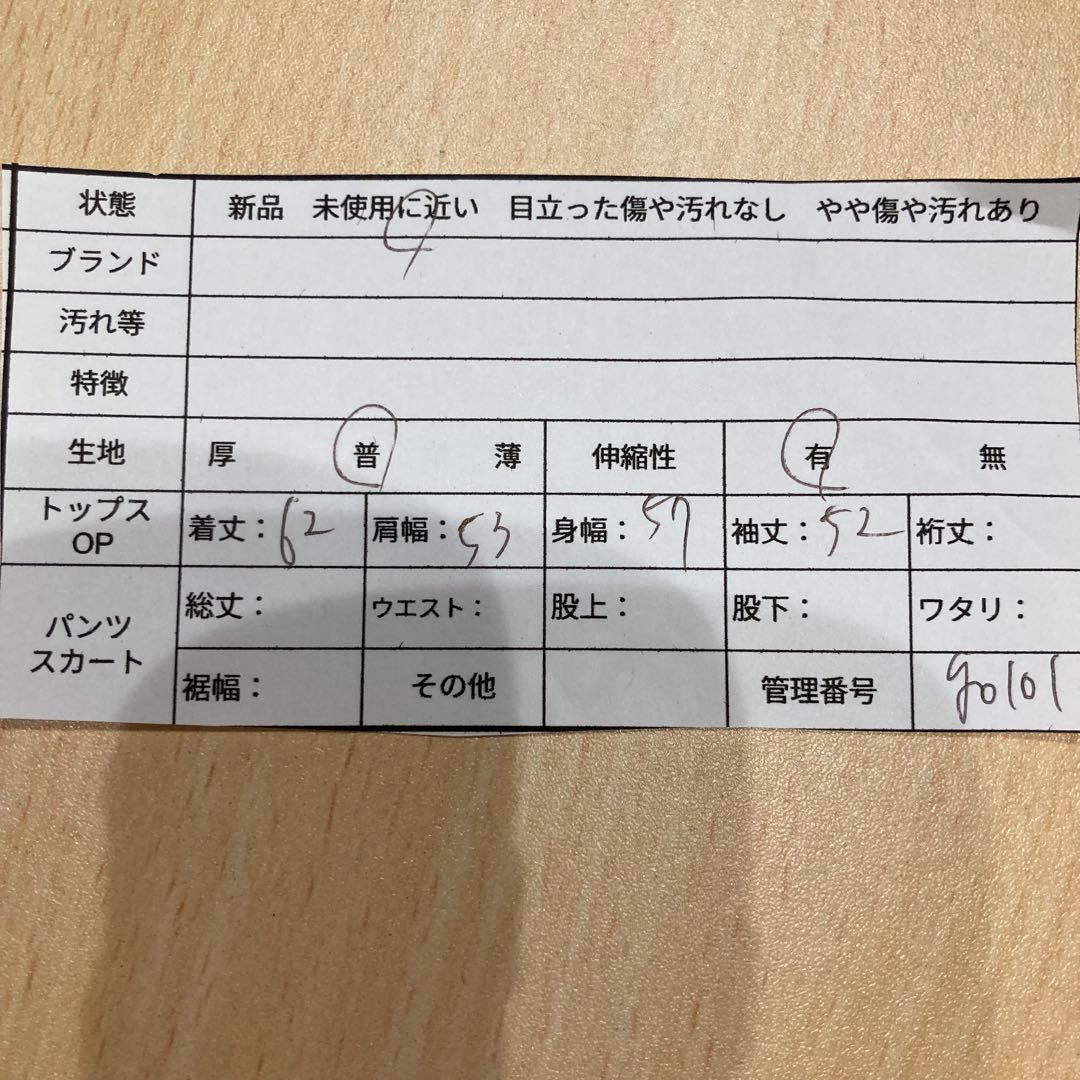 状態 新品 未使用に近い 目立った傷や汚れなし やや傷や汚れあり
ブランド
汚れ等
特徴
生地 厚 普 薄 伸縮性 有 無
トップス OP 着丈：62 肩幅：53 身幅：57 袖丈：52 裄丈：
パンツ スカート 総丈： ウエスト： 股上： 股下： ワタリ：
裾幅： その他 管理番号 go101